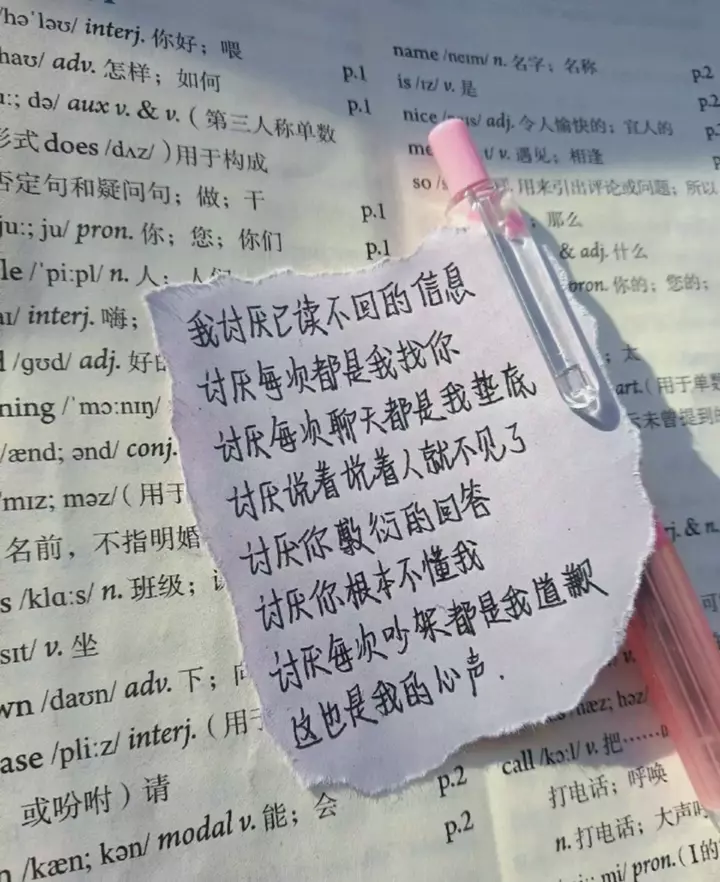 /həˈləʊ/ interj. 你好；喂
/haʊ/ adv. 怎样；如何 p.1
uː; də/ aux v. & v.（第三人称单数 p.1
形式 does /dʌz/）用于构成
否定句和疑问句；做；干
juː; ju/ pron. 你；您；你们 p.1
/ˈpiːpl/ n. 人；人们 p.1
interj. 嗨；
/ɡʊd/ adj. 好的
ning /ˈmɔːnɪŋ/
/ænd; ənd/ conj.
/mɪz; məz/（用于
名前，不指明婚
/klɑːs/ n. 班级；
sɪt/ v. 坐
wn /daʊn/ adv. 下；向
ase /pliːz/ interj.（用于
或吩咐）请 p.2
n /kæn; kən/ modal v. 能；会 p.2
name /neɪm/ n. 名字；名称 p.2
is /ɪz/ v. 是 p.2
nice adj. 令人愉快的；宜人的
v. 遇见；相逢
so 用来引出评论或问题；所以
；那么
& adj. 什么
pron. 你的；您的；
；太
art.（用于单数
未曾提到的
我讨厌已读不回的信息
讨厌每次都是我找你
讨厌每次聊天都是我垫底
讨厌说着说着人就不见了
讨厌你敷衍的回答
讨厌你根本不懂我
讨厌每次吵架都是我道歉
这也是我的心声.
call /kɔːl/ v. 把……
打电话；呼唤
n. 打电话；大声
mi/ pron.（I 的